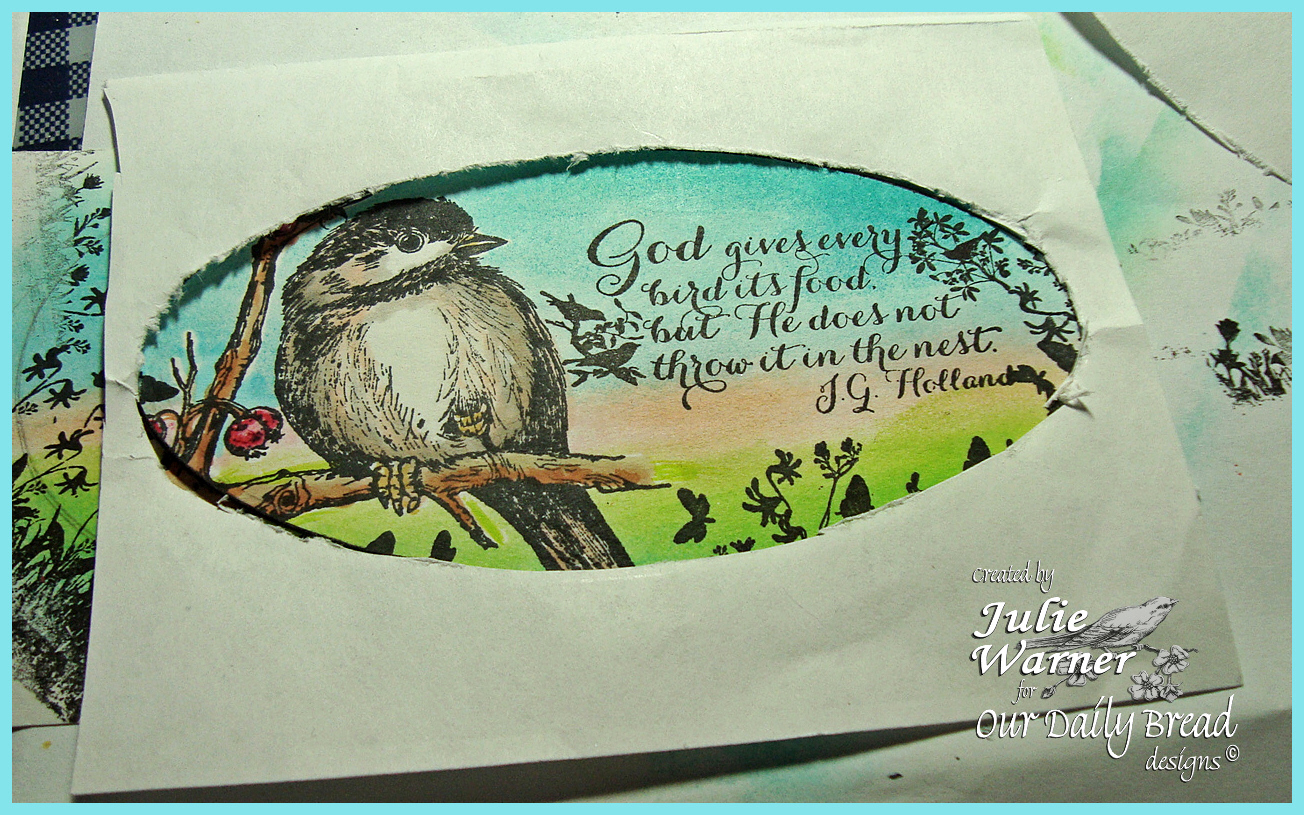 God gives every
bird its food.
but He does not
throw it in the nest.
J.G. Holland
Created by
Julie
Warner
for
Our Daily Bread
designs ©